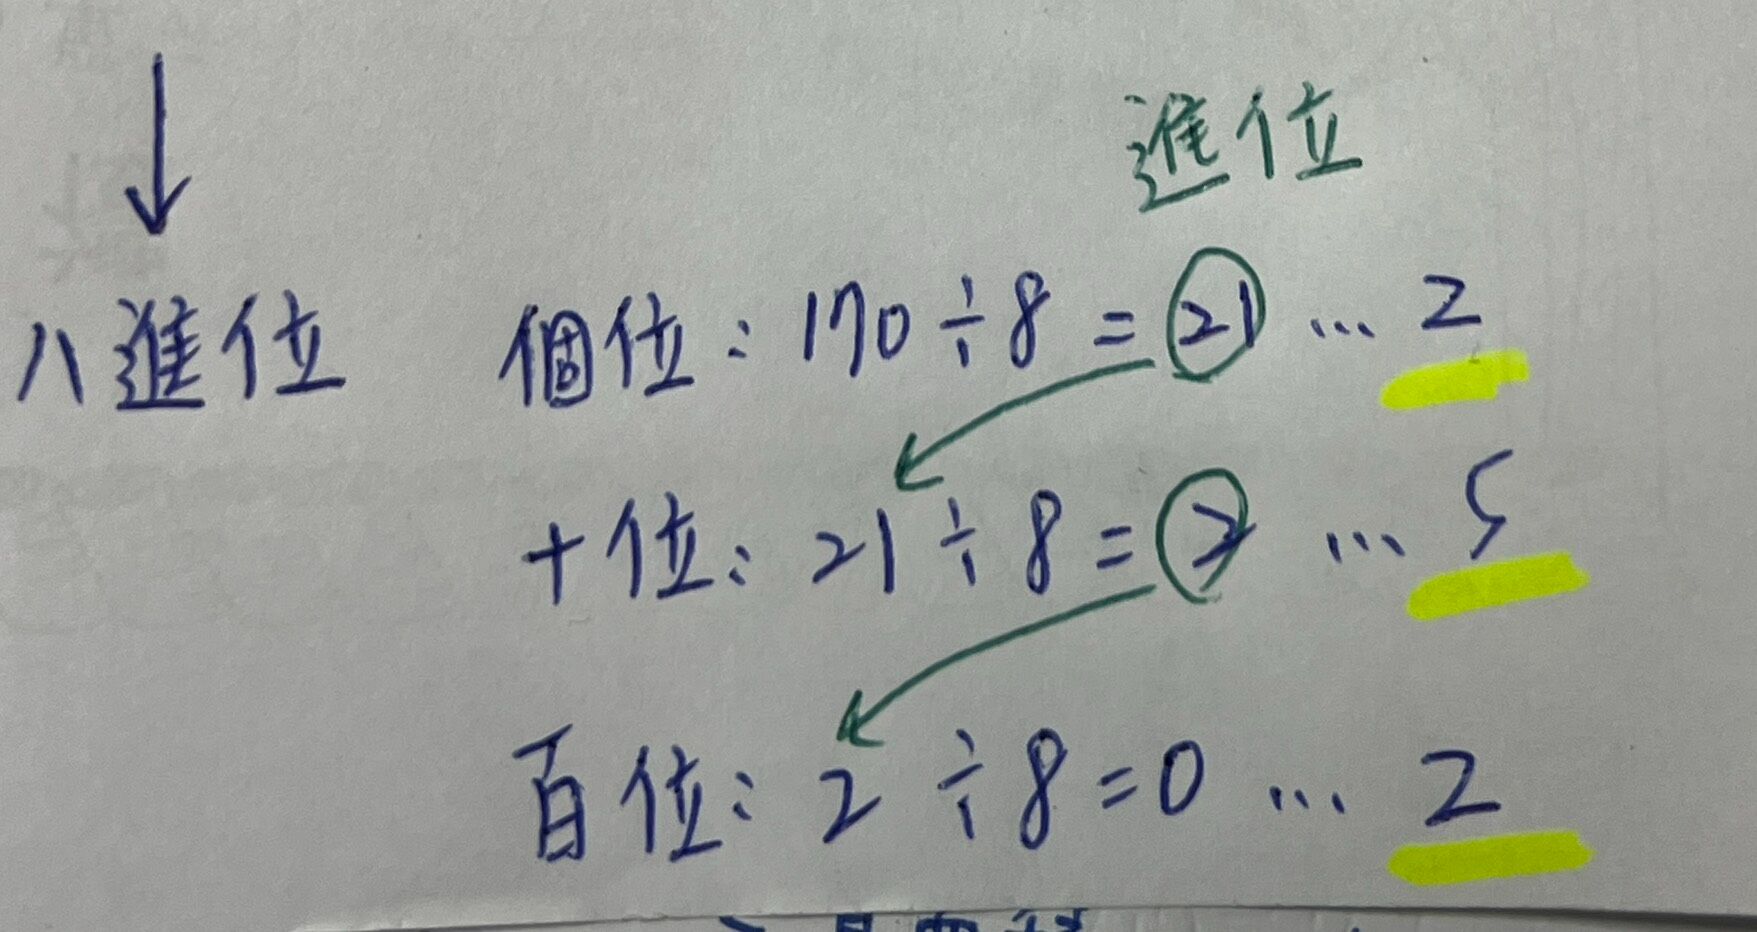 進位
八進位 個位：170÷8=21…2
十位：21÷8=2…5
百位：2÷8=0…2